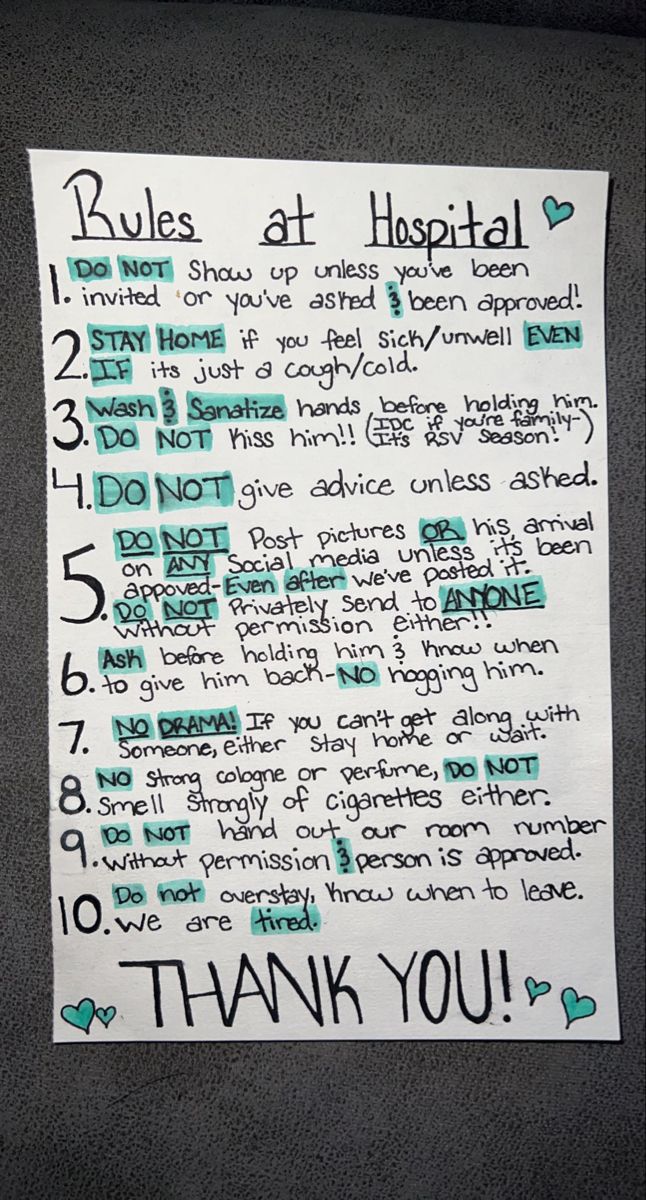 Rules at Hospital
1. DO NOT Show up unless you've been
invited or you've asked & been approved!
2. STAY HOME if you feel sick/unwell EVEN
IF its just a cough/cold.
3. Wash & Sanatize hands before holding him.
DO NOT Kiss him!! (IDC if you're family-
It's RSV Season!)
4. DO NOT give advice unless asked.
5. DO NOT Post pictures OR his arrival
on ANY Social media unless it's been
appoved-Even after we've posted it.
DO NOT Privately Send to ANYONE
without permission either!!
6. Ask before holding him & Know when
to give him back-NO hogging him.
7. NO DRAMA! If you can't get along with
Someone, either stay home or wait.
8. NO strong cologne or perfume, DO NOT
Smell strongly of cigarettes either.
9. DO NOT hand out our room number
without permission & person is approved.
10. Do not overstay, Know when to leave.
we are tired.
THANK YOU!